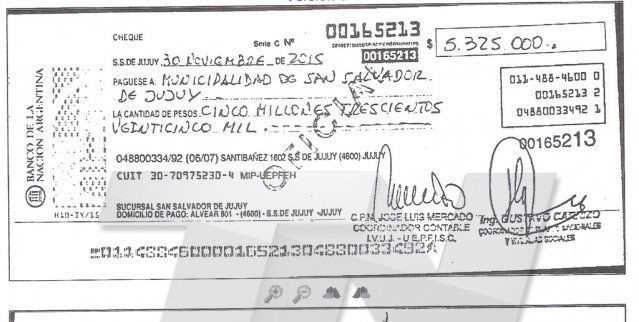 CHEQUE
Serie C Nº 00165213
00165213
$ 5.325 000.-
S.S.DE JUJUY 30 NOVIEMBRE DE 2015
PAGUESE A: MUNICIPALIDAD DE SAN SALVADOR
DE JUJUY
LA CANTIDAD DE PESOS CINCO MILLONES TRESCIENTOS
VEINTICINCO MIL
011-488-4600 0
00165213 2
04880033492 1
00165213
BANCO DE LA
NACION ARGENTINA
048800334/92 (06/07) SANTIBAÑEZ 1602 S.S DE JUJUY (4600) JUJUY
CUIT 30-70975230-4 MIP-UEPFEH
SUCURSAL SAN SALVADOR DE JUJUY
DOMICILIO DE PAGO: ALVEAR 801 - (4600) - S.S.DE JUJUY -JUJUY
C.P.N. JOSE LUIS MERCADO
COORDINADOR CONTABLE
I.V.U.J. - U.E.P.F.I.S.C.
Ing. GUSTAVO
Y SOCIALES